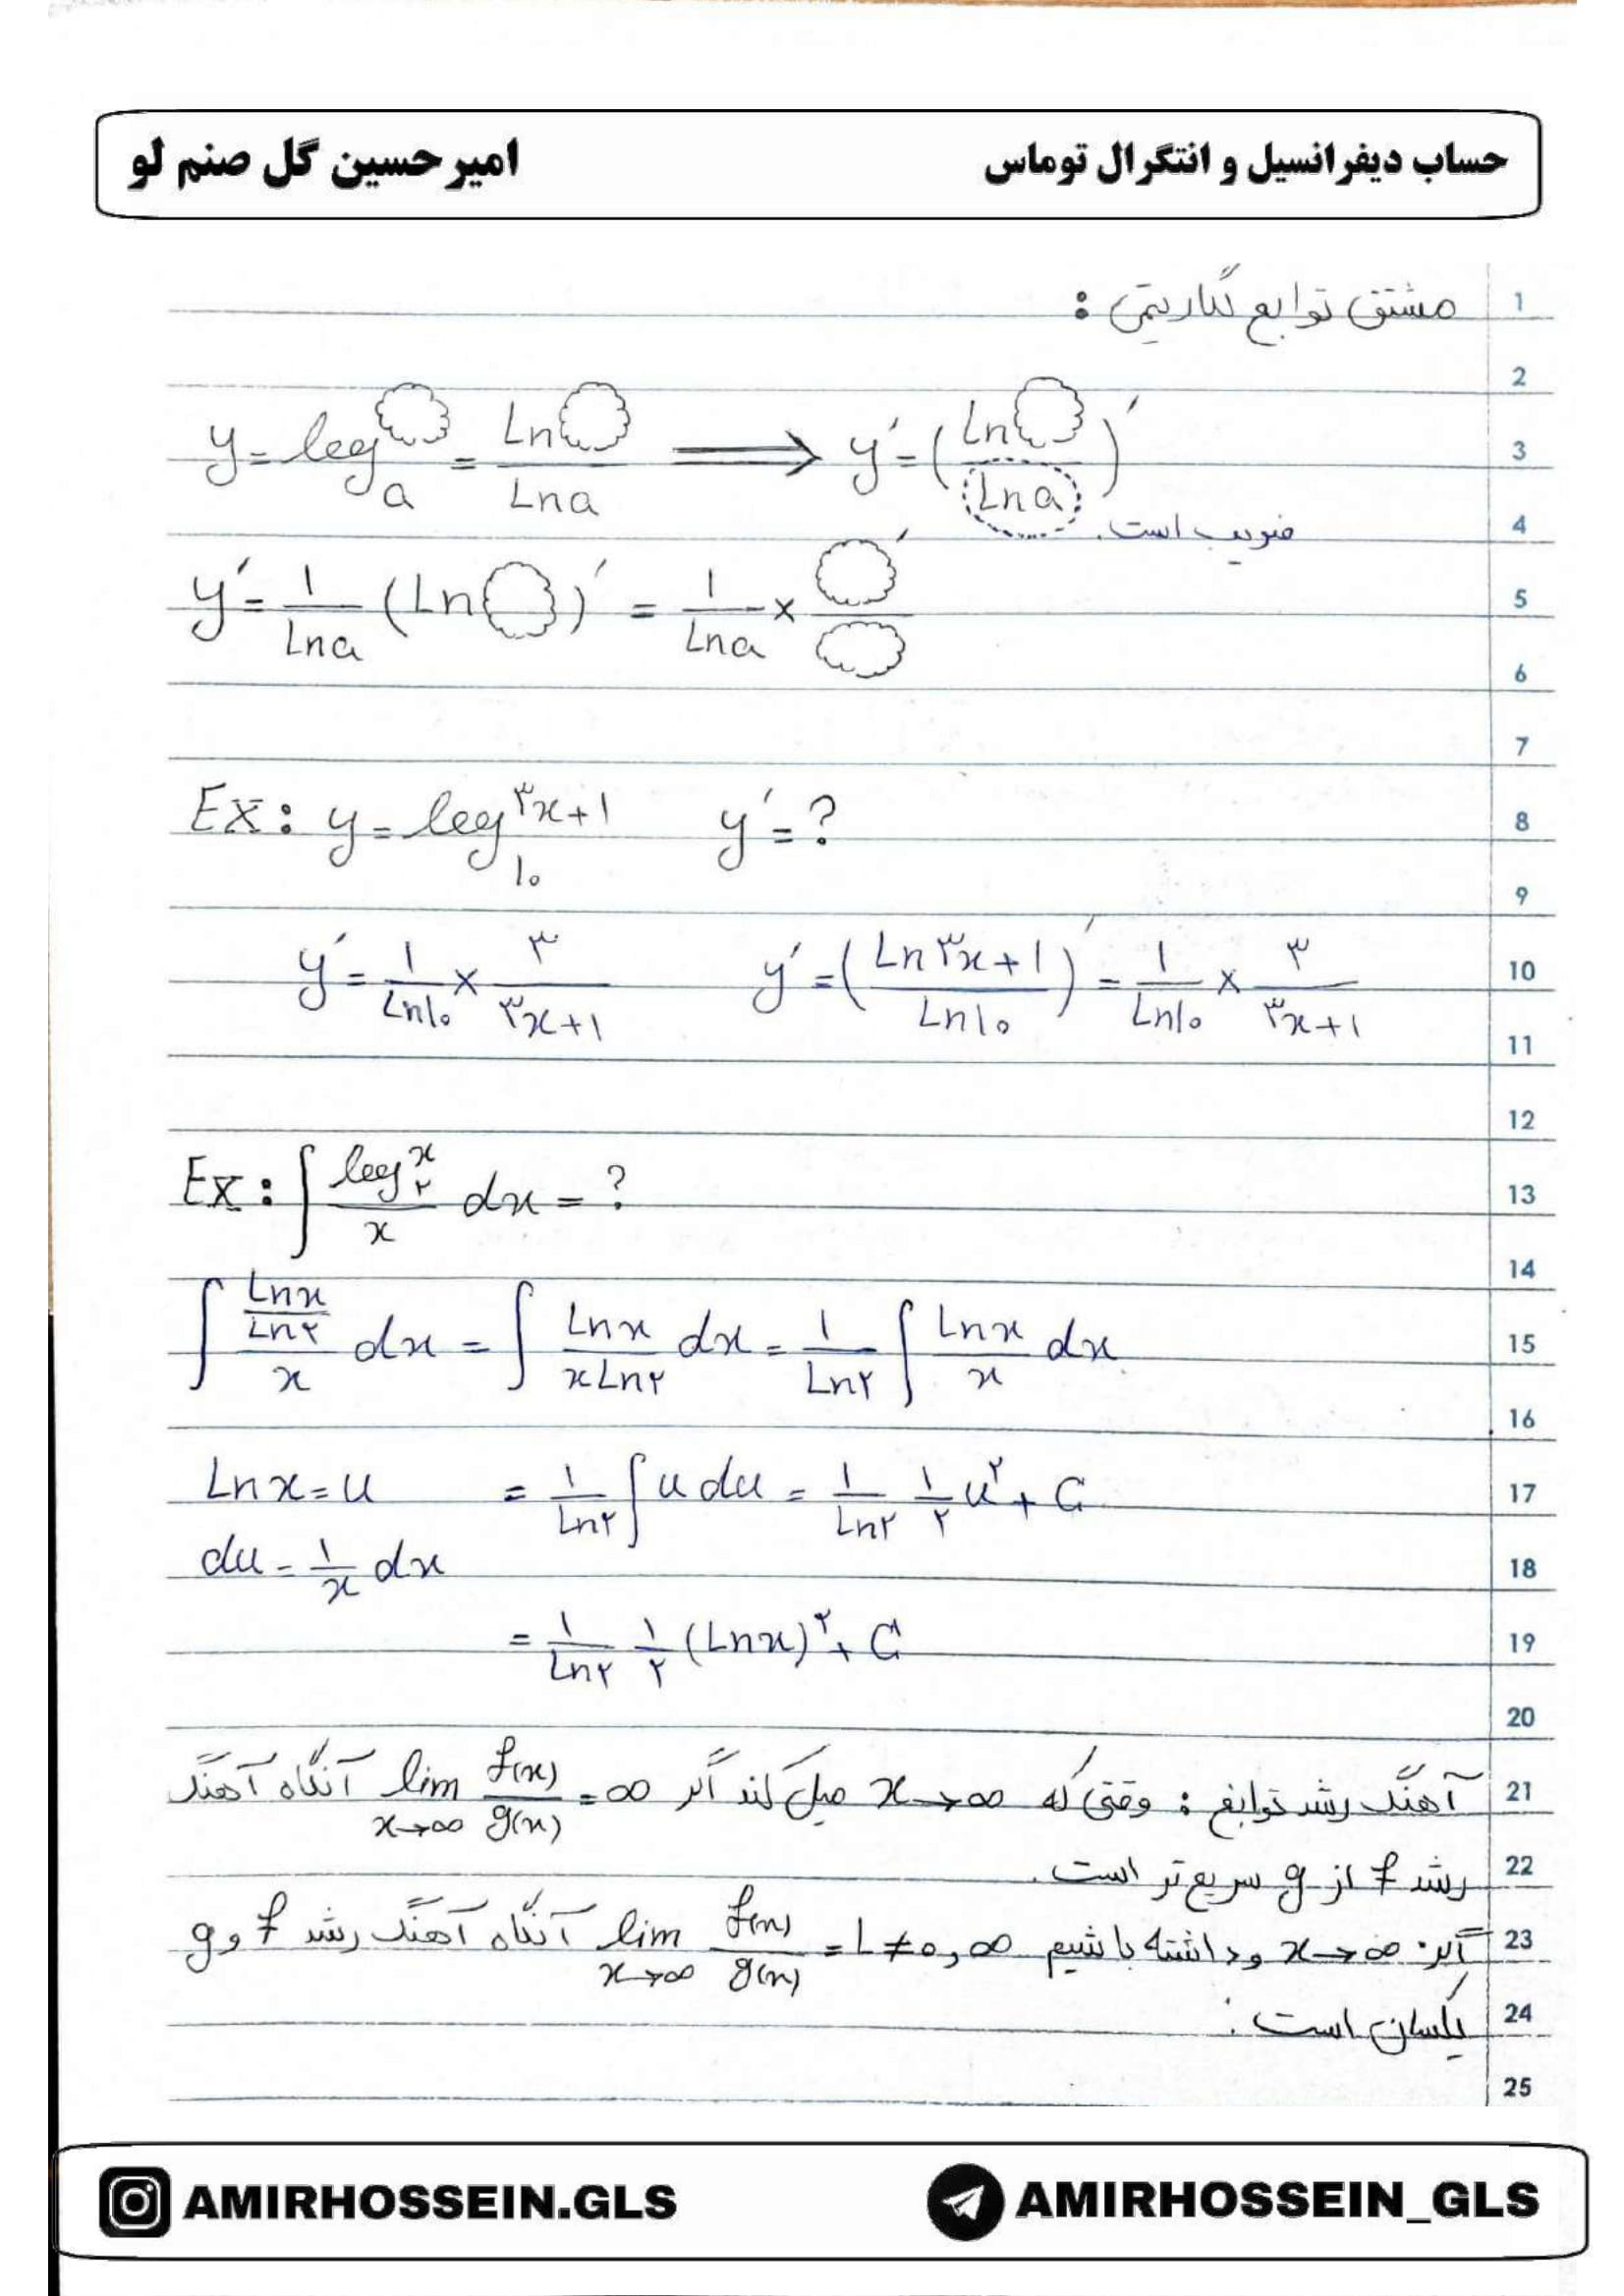 حساب دیفرانسیل و انتگرال توماس امیرحسین گل صنم لو
مشتق توابع لگاریتمی : 1
2
y = log_a ◯ = Ln◯ / Lna ⟹ y′ = (Ln◯ / Lna)′ 3
ضریب است. 4
y′ = ۱/Lna (Ln◯)′ = ۱/Lna × ◯′/◯ 5
6
7
Ex: y = log_۱۰ ۳x+۱ y′ = ? 8
9
y′ = ۱/Ln۱۰ × ۳/۳x+۱ y′ = (Ln۳x+۱ / Ln۱۰)′ = ۱/Ln۱۰ × ۳/۳x+۱ 10
11
12
Ex: ∫ log_۲ x / x dx = ? 13
14
∫ (Lnx/Ln۲)/x dx = ∫ Lnx/xLn۲ dx = ۱/Ln۲ ∫ Lnx/x dx 15
16
Lnx = u = ۱/Ln۲ ∫ u du = ۱/Ln۲ ۱/۲ u^۲ + C 17
du = ۱/x dx 18
= ۱/Ln۲ ۱/۲ (Lnx)^۲ + C 19
20
آهنگ رشد توابع : وقتی که x→∞ میل کند اگر lim x→∞ f(x)/g(x) = ∞ آنگاه آهنگ 21
رشد f از g سریع تر است. 22
اگر x→∞ و داشته باشیم lim x→∞ f(x)/g(x) = L ≠ ۰,∞ آنگاه آهنگ رشد f و g 23
یکسان است. 24
25
AMIRHOSSEIN.GLS AMIRHOSSEIN_GLS